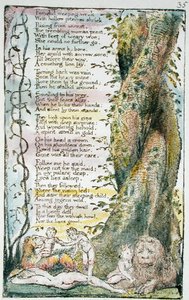 35
Famish'd, weeping, weak
With hollow piteous shriek
Rising from unrest,
The trembling woman prest,
With feet of weary woe;
She could no further go.
In his arms he bore,
Her arm'd with sorrow sore;
Till before their way,
A couching lion lay.
Turning back was vain,
Soon his heavy mane,
Bore them to the ground;
Then he stalk'd around.
Smelling to his prey.
But their fears allay,
When he licks their hands;
And silent by them stands.
They look upon his eyes
Fill'd with deep surprise;
And wondering behold,
A spirit arm'd in gold.
On his head a crown
On his shoulders down,
Flow'd his golden hair.
Gone was all their care.
Follow me he said,
Weep not for the maid;
In my palace deep,
Lyca lies asleep.
Then they followed,
Where the vision led;
And saw their sleeping child,
Among tygers wild.
To this day they dwell
In a lonely dell
Nor fear the wolvish howl,
Nor the lions growl.